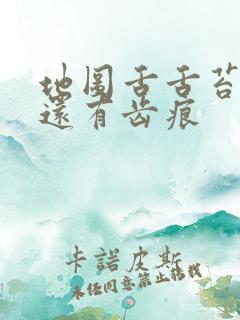 地图舌舌苔
還有齿痕
卡諾皮斯
未经同意禁止转载